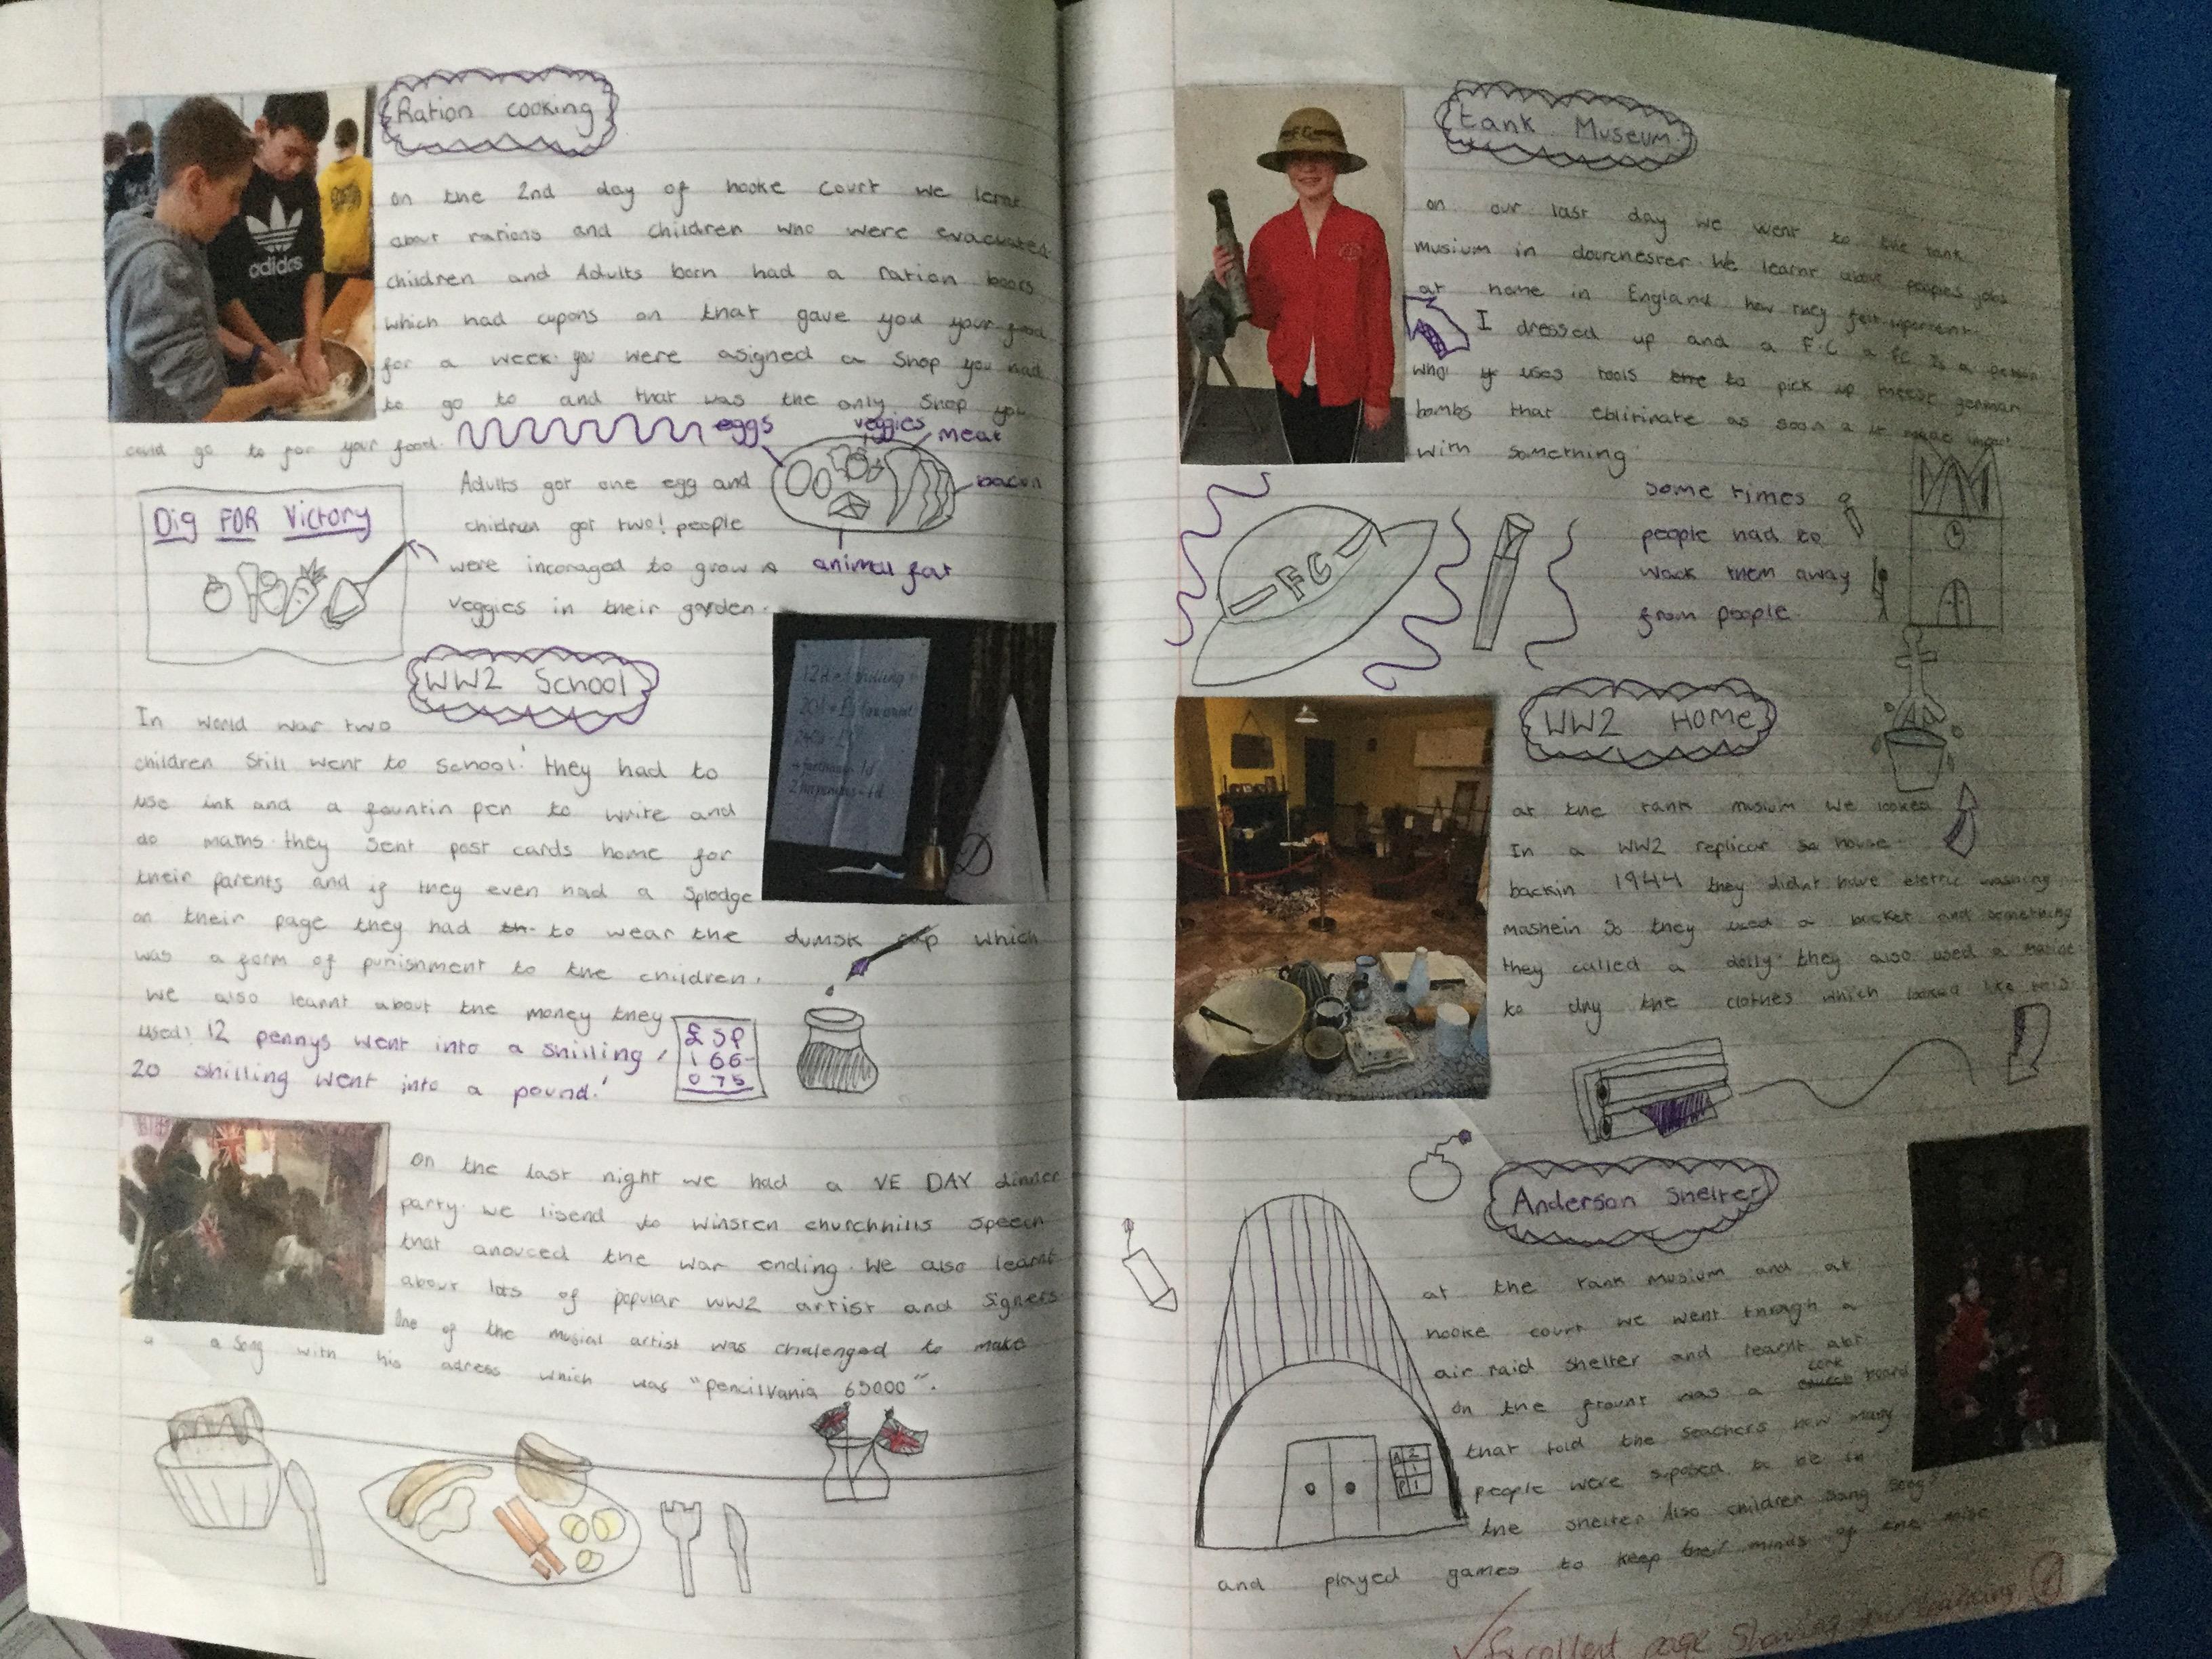 Ration cooking
adidas
on the 2nd day of hooke court we lernt
about rations and children who were evacuated.
children and Adults born had a ration books
which had cupons on that gave you your food
for a week. you were asigned a shop you had
to go to and that was the only shop you
could go to for your food.
eggs veggies meat
bacon
animal fat
Dig FOR Victory
Adults got one egg and
children got two! people
were incoraged to grow
veggies in their garden.
WW2 School
In world war two
children still went to school! they had to
use ink and a fountin pen to write and
do maths. they sent post cards home for
their parents and if they even had a splodge
on their page they had th to wear the dumsk cap which
was a form of punishment to the children.
we also learnt about the money they
used! 12 pennys went into a shilling,
20 shilling went into a pound!
£ S P
1 6 6
0 7 5
on the last night we had a VE DAY dinner
party. we lisend to winsten churchhills speech
that anouced the war ending. we also learnt
about lots of popular WW2 artist and signers
One of the musial artist was chalenged to make
a song with his adress which was "pencilvania 65000".
tank Museum!
on our last day we went to the tank
musium in dourchester. We learnt about peoples jobs
at home in England how they felt
I dressed up and a F.C a FC Is a person
who uses tools the to pick up these german
bombs that as soon a it made impact
with something
FC
some times
people had to
wack them away
from people.
WW2 Home
at the tank musium we looked
In a WW2 replicar so house.
backin 1944 they didnt have eletric washing
mashein so they used a bucket and something
they called a dolly. they also used a
to dry the clothes which looked like this
Anderson Shelter
at the tank musium and at
hooke court we went through a
air raid shelter and learnt abt
on the frount was a cork board
that told the teachers how many
people were suposed to be in
the shelter Also children sang songs
and played games to keep their minds of the
A 2
C 1
P 1
Excellent page showing your learning.